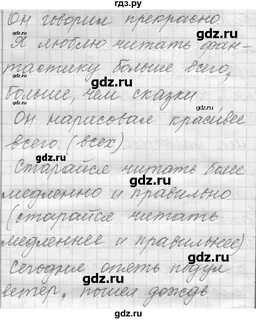 gdz.ru
Он говорит прекрасно
Я люблю читать фан-
тастику больше всего,
больше, чем сказки.
Он нарисовал красивее
всего (всех).
Старайся читать более
медленно и правильно
(старайся читать
медленнее и правильнее)
Сегодня опять подул
ветер, пошел дождь